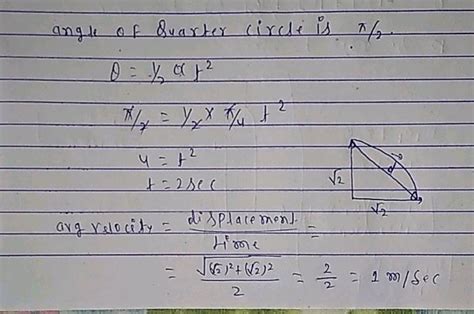 angle of Quarter circle is π/2.
θ = 1/2 α t²
π/2 = 1/2 × π/4 t²
4 = t²
t = 2 sec
√2
d
√2
avg velocity = displacement / time =
= √((√2)² + (√2)²) / 2 = 2/2 = 1 m/sec